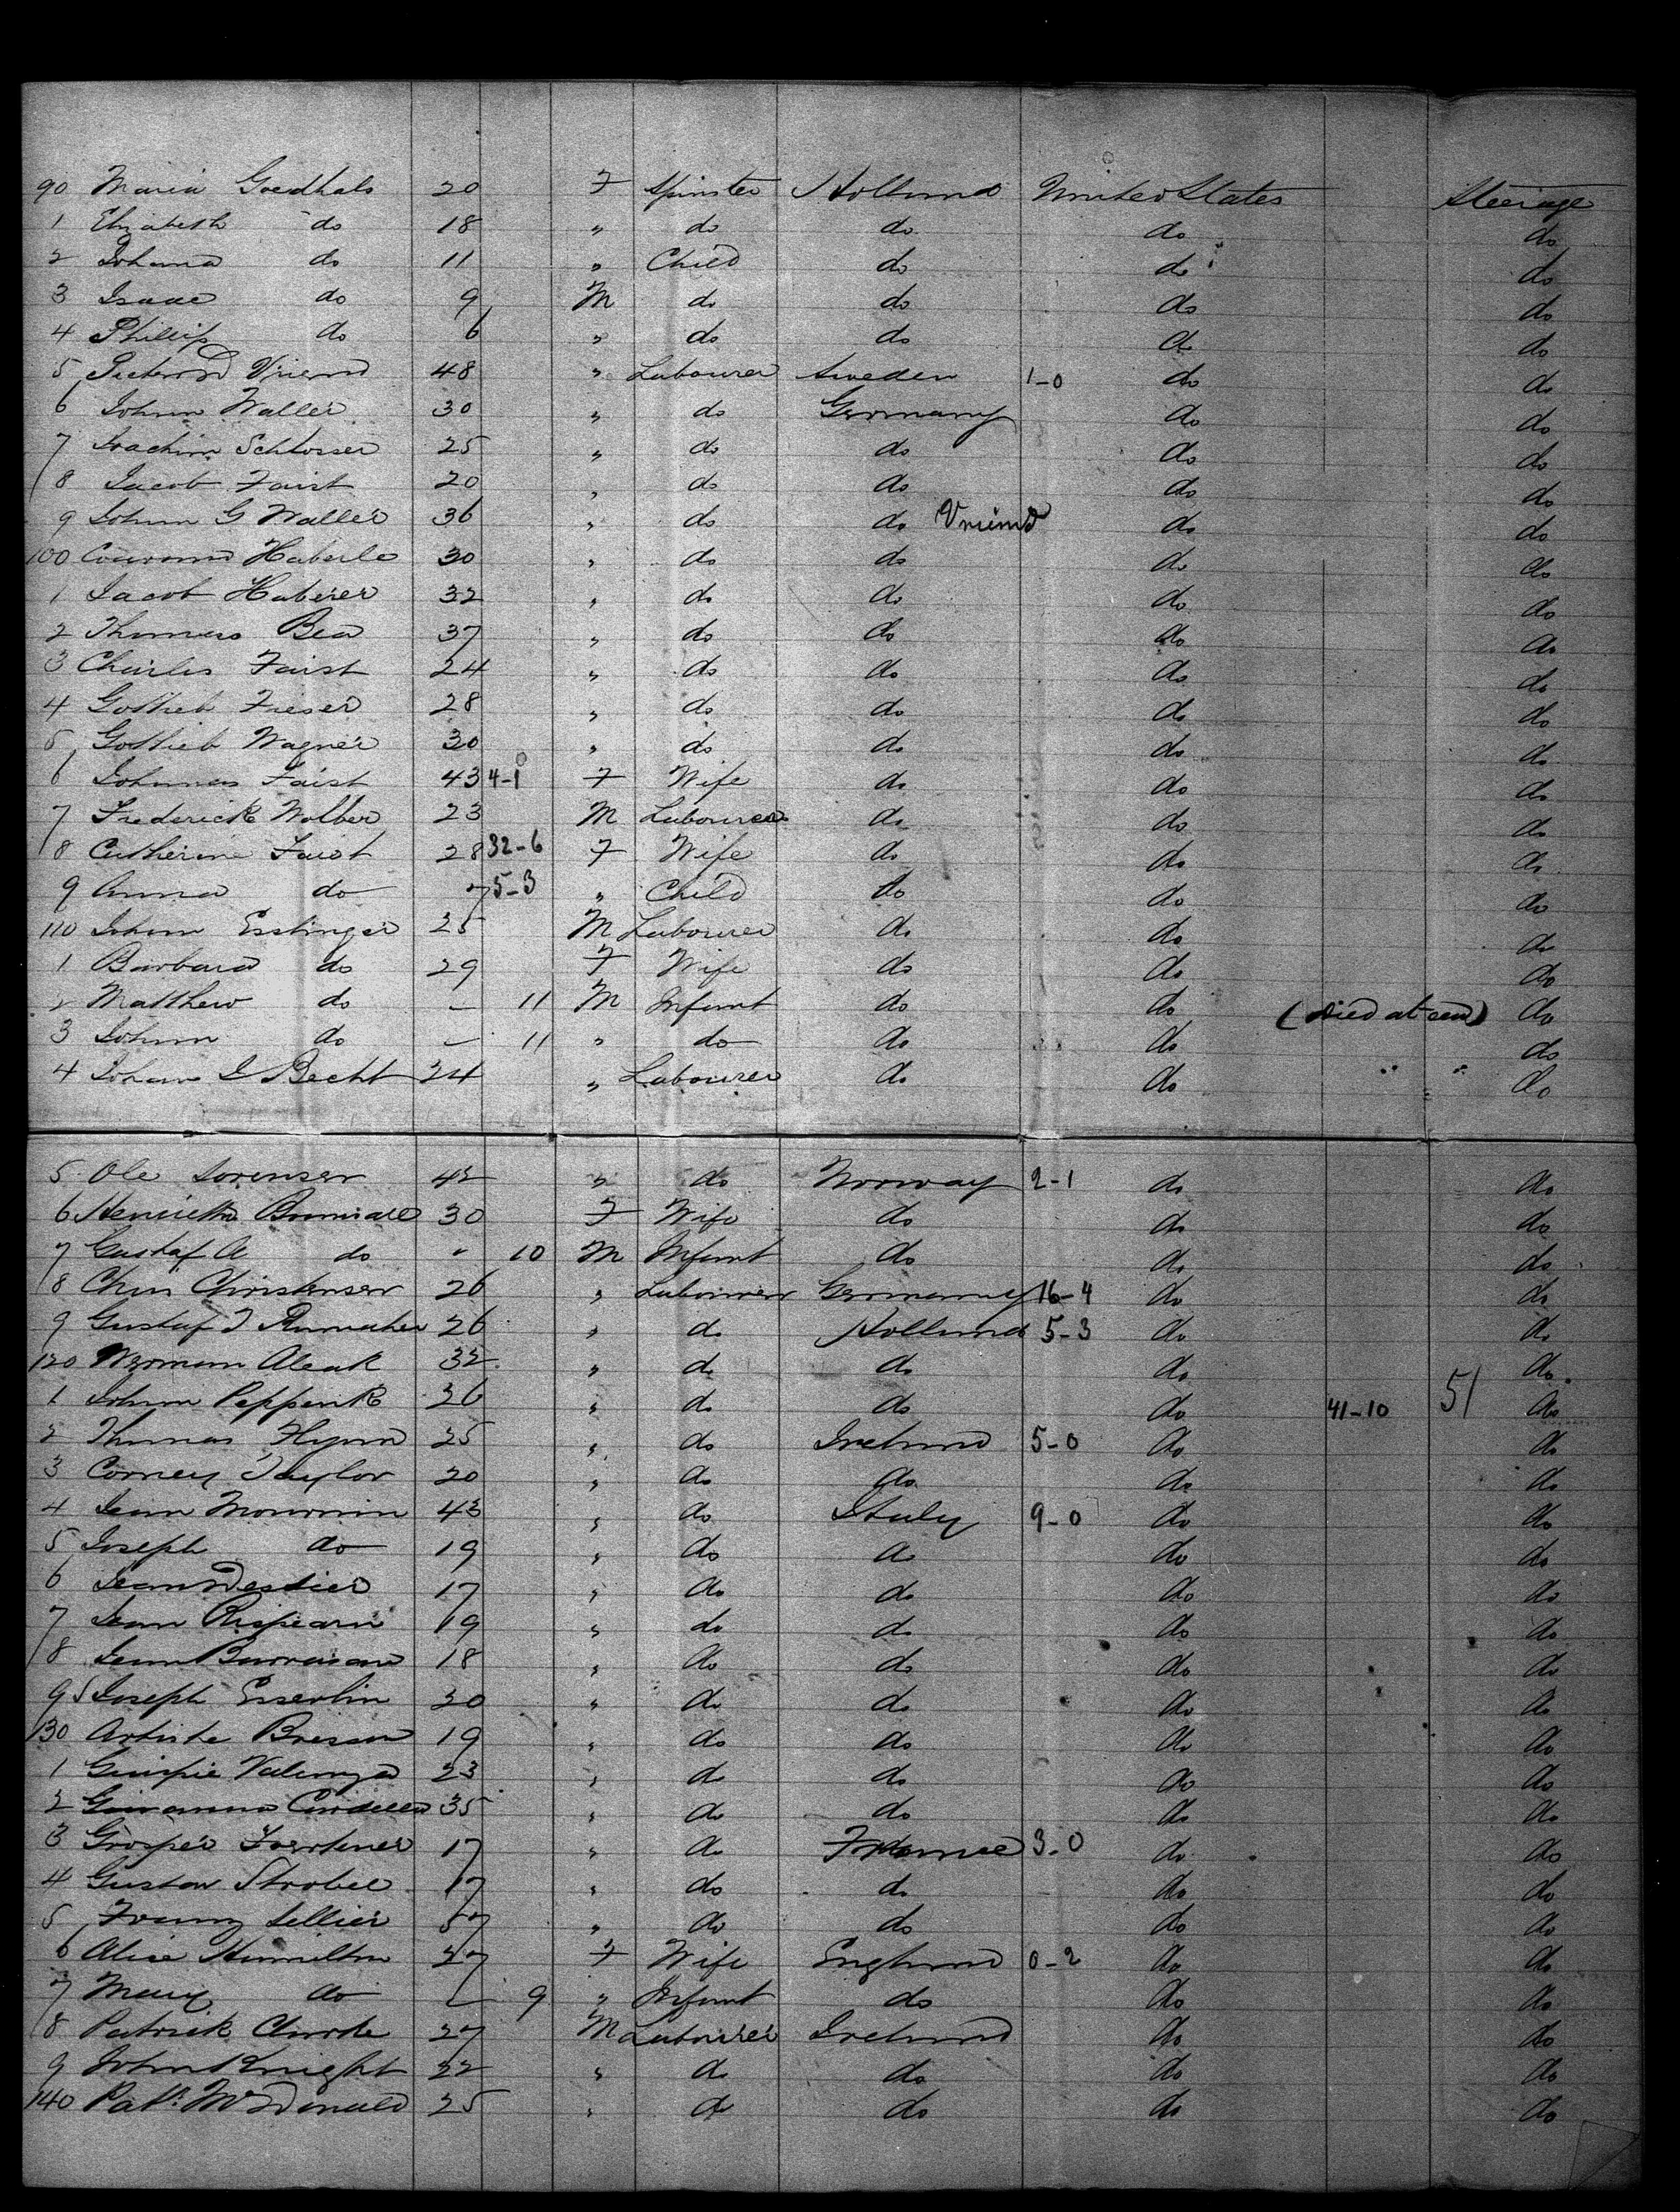 90 Maria Goedhals 20 F Spinster Holland United States Steerage
1 Elizabeth do 18 " do do do do
2 Johana do 11 " Child do do do
3 Isaac do 9 M do do do do
4 Phillip do 6 " do do do do
5 Vriend 48 " Labourer Sweden 1-0 do do
6 Johann Waller 30 " do Germany do do
7 Joachim Schlosser 25 " do do do do
8 Jacob Faist 20 " do do do do
9 Johann G Waller 36 " do do Vriend do do
100 Haberle 30 " do do do do
1 Jacob Haberer 32 " do do do do
2 Thomas Bea 37 " do do do do
3 Charles Faist 24 " do do do do
4 Gottlieb Fieser 28 " do do do do
5 Gottlieb Wagner 30 " do do do do
6 Johannes Faist 43 4-1 F Wife do do do
7 Frederick Wolber 23 M Labourer do do do
8 Catherine Faist 28 32-6 F Wife do do do
9 Anna do 7 5-3 " Child do do do
110 Johann Esslinger 25 M Labourer do do do
1 Barbara do 29 F Wife do do do
2 Matthew do - 11 M Infant do do (Died at sea) do
3 Johann do - 11 " do do do do
4 Johann J Becht 24 " Labourer do do " " do
5 Ole Sorensen 42 " do Norway 2-1 do do
6 Henrietta 30 F Wife do do do
7 Gustaf A do " 10 M Infant do do do
8 Chris Christensen 26 " Labourer Germany 16-4 do do
9 Gustaf 26 " do Holland 5-3 do do
120 32 " do do do do
1 Johann Peppenk 26 " do do do 41-10 51 do
2 Thomas Flynn 25 " do Ireland 5-0 do do
3 Corney Taylor 20 " do do do do
4 Jean 43 " do Italy 9-0 do do
5 Joseph do 19 " do do do do
6 Jean 17 " do do do do
7 Jean 19 " do do do do
8 Jean 18 " do do do do
9 Joseph Esserlin 20 " do do do do
130 19 " do do do do
1 23 " do do do do
2 35 " do do do do
3 17 " do France 3-0 do do
4 Gustav Strobel 17 " do do do do
5 Franz Sellier 57 " do do do do
6 Alice Hamilton 27 F Wife England 0-2 do do
7 Mary do - 9 " Infant do do do
8 Patrick 27 M Labourer Ireland do do
9 John Knight 22 " do do do do
140 Patk McDonald 25 " do do do do